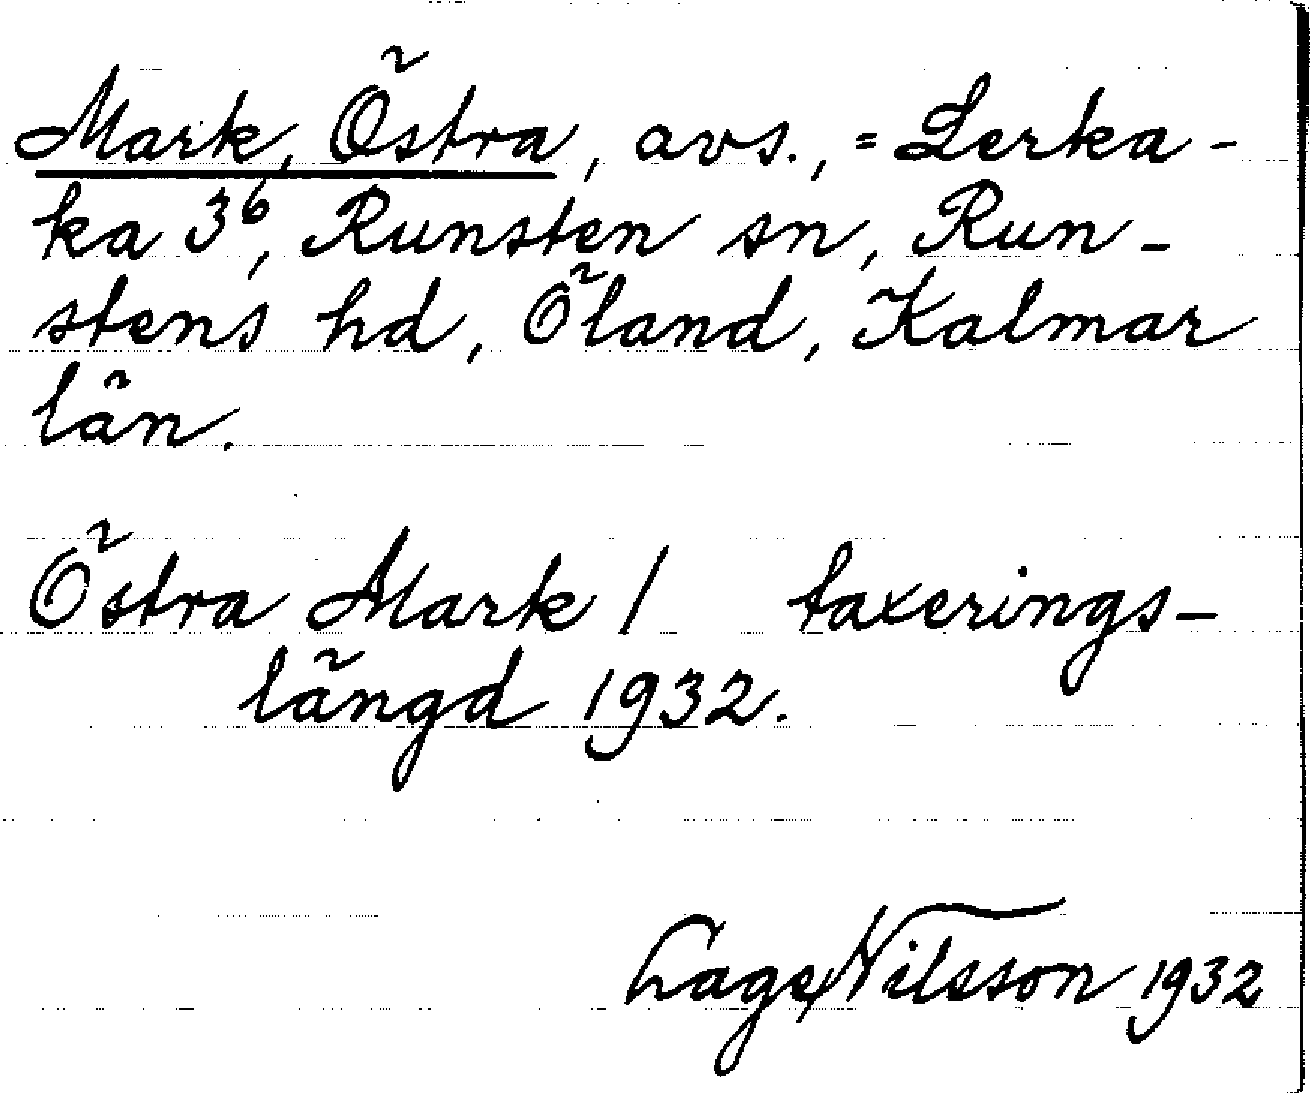 Mark, Östra, avs., = Lerka-
ka 3⁶, Runsten sn, Run-
stens hd, Öland, Kalmar
län.
Östra Mark / taxerings-
längd 1932.
Lage Nilsson 1932